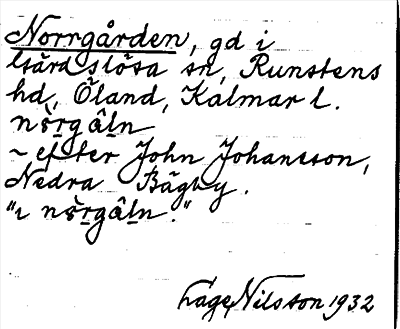 Norrgården, gd i
Gärdslösa sn, Runstens
hd, Öland, Kalmar l.
nǒ̀rgâḷn
~ efter John Johansson,
Nedra Bägby.
"ɩ nǒ̀rgâḷn."
Lage Nilsson 1932